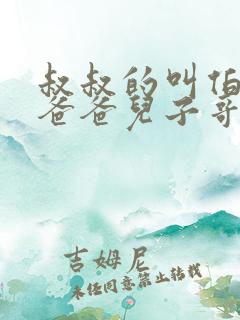 叔叔的叫伯
爸爸兒子哥
吉姆尼
未经同意禁止转载